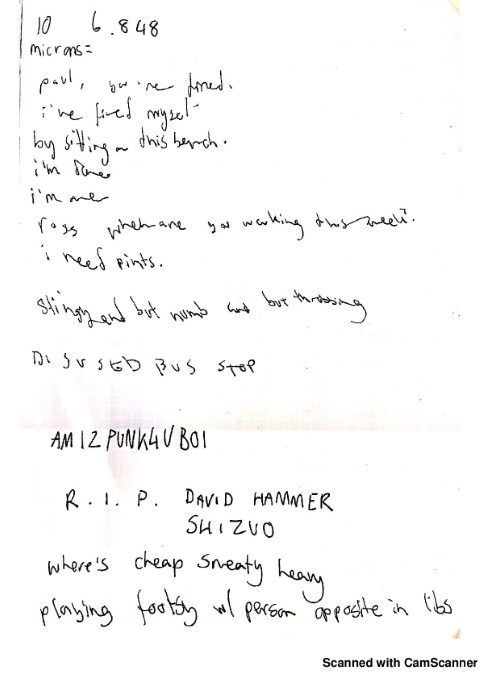 10 6.848
microns=
paul, you're fired.
i've fired myself
by sitting on this bench.
i'm
i'm
ross when are you working this week?
i need pints.
stingy end but numb and but throbbing
DISUSED BUS STOP
AM I 2 PUNK 4 U BOI
R.I.P. DAVID HAMMER
SHIZUO
where's cheap sweaty heavy
playing footsy w/ person opposite in libs
Scanned with CamScanner